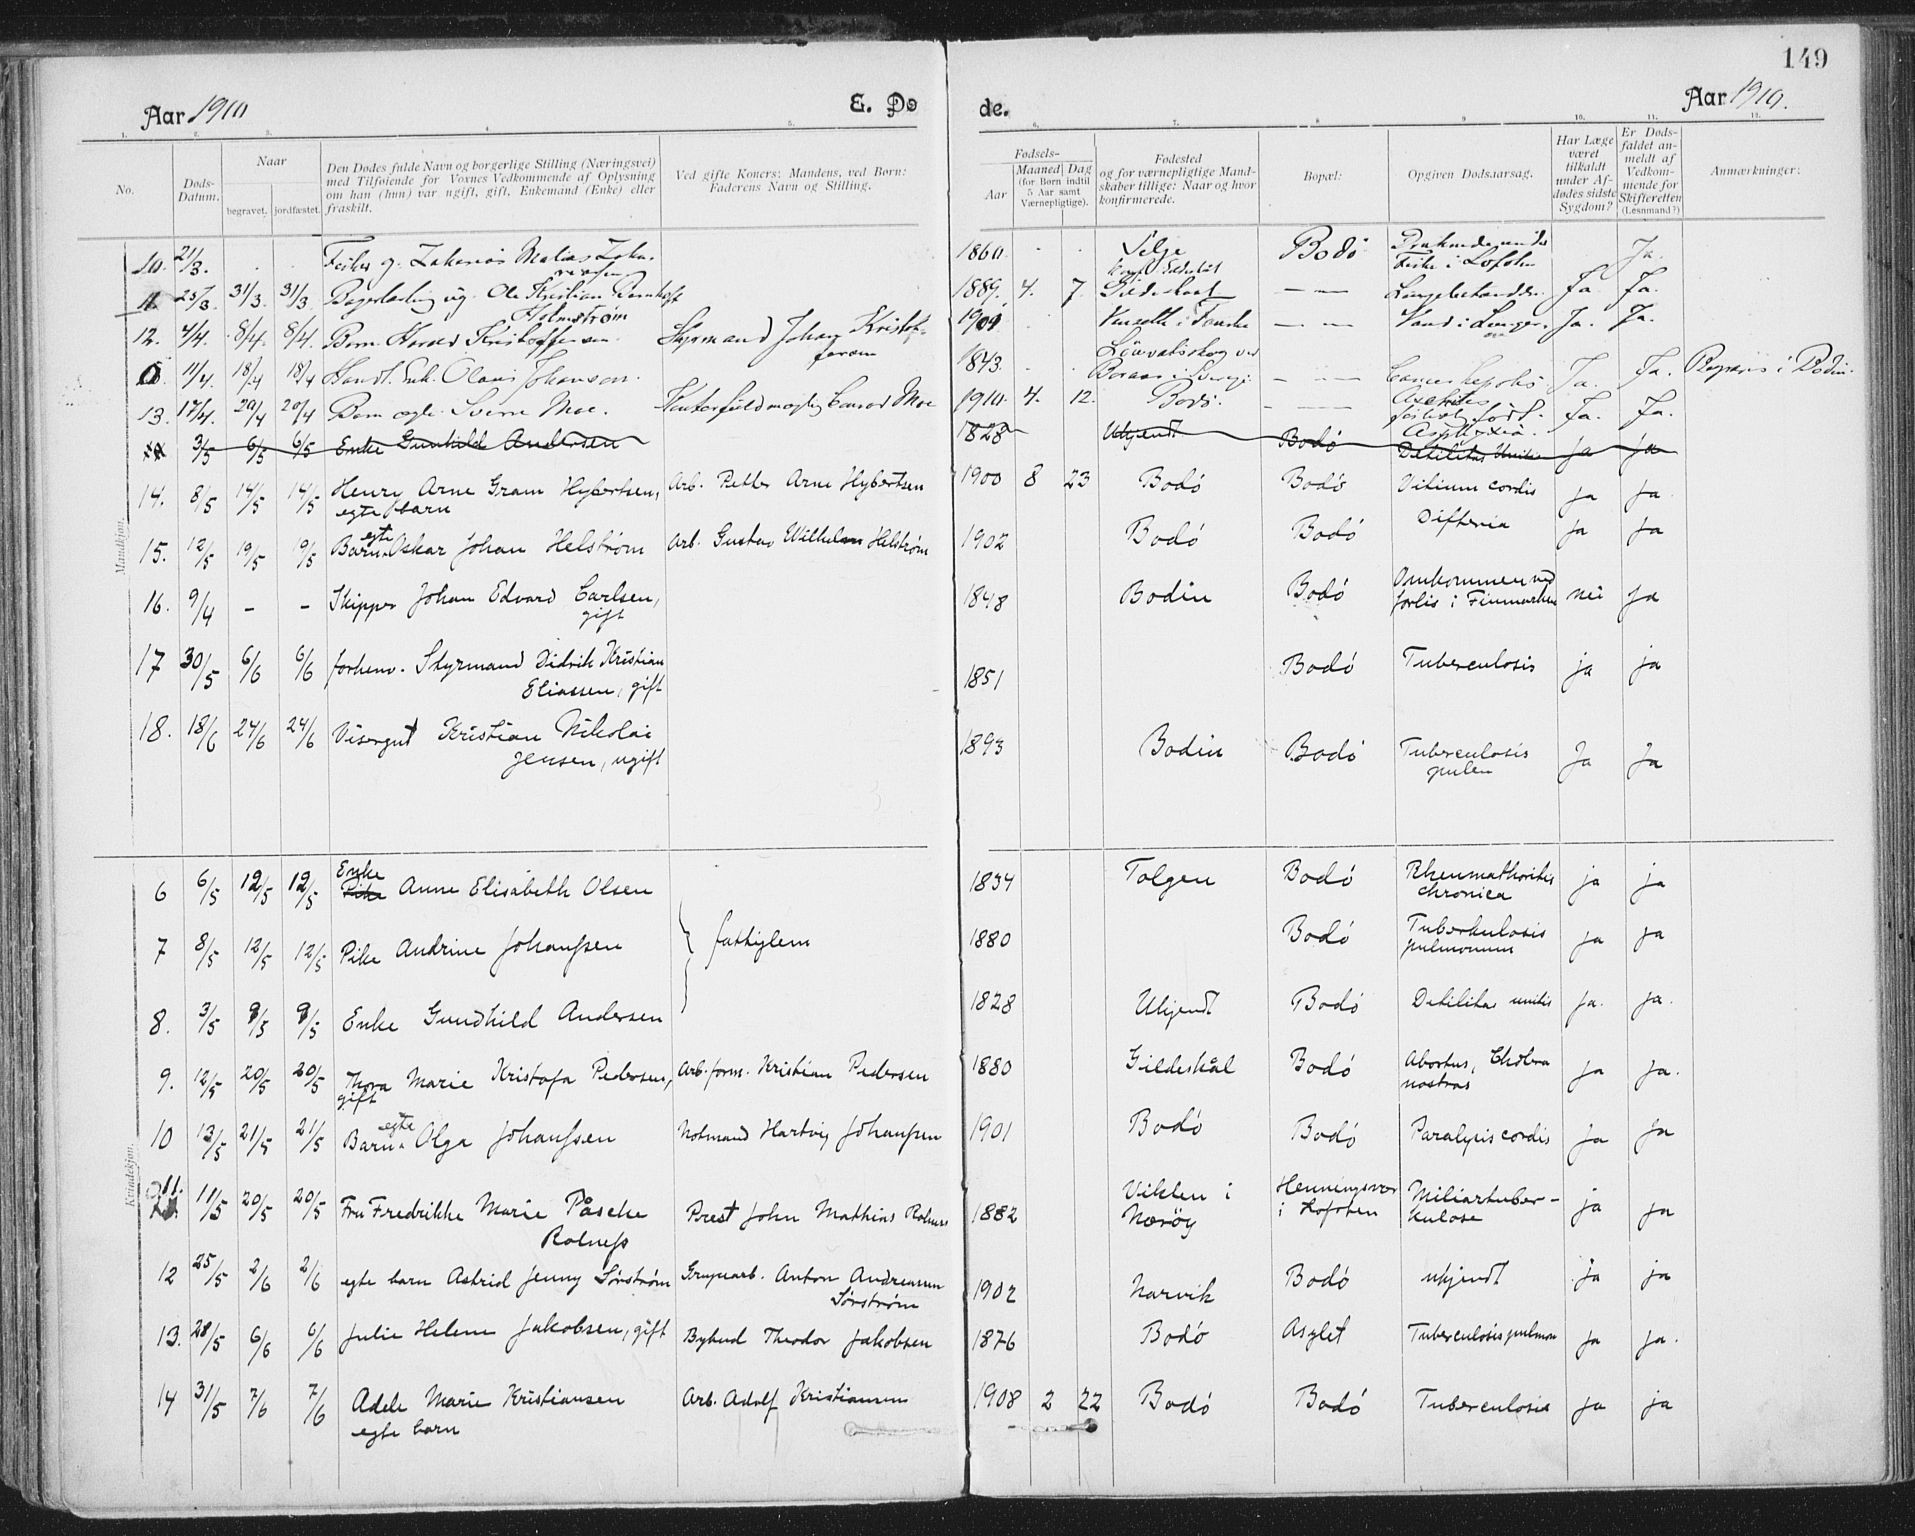 149
Aar 1910 E. Dø de. Aar 1910.
1. 2. 3. 4. 5. 6. 7. 8. 9. 10. 11. 12.
No. Døds-Datum. Naar begravet. jordfæstet. Den Dødes fulde Navn og borgerlige Stilling (Næringsvei) med Tilføiende for Voxnes Vedkommende af Oplysning om han (hun) var ugift, gift, Enkemand (Enke) eller fraskilt. Ved gifte Koners: Mandens, ved Børn: Faderens Navn og Stilling. Fødsels- Aar Maaned Dag (for Børn indtil 5 Aar samt Værnepligtige). Fødested og for værnepligtige Mandskaber tillige: Naar og hvor konfirmerede. Bopæl: Opgiven Dødsaarsag. Har Læge været tilkaldt under Afdødes sidste Sygdom? Er Dødsfaldet anmeldt af Vedkommende for Skifteretten (Lensmand?) Anmærkninger:
Mandkjøn.
10. 21/3. Fisker g. Zakarias Matias Johansen 1860 Bodø Fiske i Lofoten Ja.
11. 25/3 31/3 31/3 Ole Kristian Holmstrøm 1889. 4. 7. Gildeskaal — — Ja. Ja.
12. 4/4. 8/4. 8/4. Barn Harald Kristoffersen Styrmand Johan Kristoffersen Fauske — — Vand i Lunger. Ja. Ja.
0 11/4. 18/4 18/4 Handl. Enk. Olaus Johanson. 1843. Sverige — — Cancer hepatis Ja. Ja. i Bodin.
13. 17/4. 20/4 20/4 Barn egte Sverre Moe. Moe 1910. 4. 12. Bodø. — — født. Asphyxia. Ja. Ja.
3/5 6/5 6/5 Enke Gunhild Andersen 1828 Ukjendt Bodø Debilitas ja ja
14. 8/5 14/5 14/5 Henry Arne Gram Hybertsen, egte barn Arb. Petter Arne Hybertsen 1900 8 23 Bodø Bodø Vitium cordis ja ja.
15. 12/5 19/5 19/5 Barn egte Oskar Johan Helstrøm Arb. Gustav Wilhelm Helstrøm 1902 Bodø Bodø Difteria ja ja
16. 9/4 - - Skipper Johan Edvard Carlsen, gift 1848 Bodin Bodø Omkommen ved forlis i Finmarken nei ja
17 30/5 6/6 6/6 forhenv. Styrmand Didrik Kristian Eliassen, gift 1851 Bodø Tuberculosis ja ja
18. 18/6 24/6 24/6 Visergut Kristian Nikolai Jensen, ugift 1893 Bodin Bodø Tuberculosis pulm Ja Ja
Kvindekjøn.
6 6/5 12/5 12/5 Pike Enke Anne Elisabeth Olsen 1834 Tolgen Bodø chronica ja ja
7 8/5 12/5 12/5 Pike Andrine Johanssen } fattiglem 1880 Bodø Tuberkulosis pulmonum ja ja
8. 3/5 9/5 9/5 Enke Gundhild Andersen 1828 Ukjendt Bodø Debilitas ja. ja.
9. 12/5 20/5 20/5 Thora Marie Kristofa Pedersen, gift Arb. form. Kristian Pedersen 1880 Gildeskål Bodø Abortus, Cholera nostras ja ja.
10 13/5 21/5 21/5 Barn egte Olga Johanssen Notmand Hartvig Johanssen 1901 Bodø Bodø Paralysis cordis ja ja
11. 11/5 20/5 20/5 Fru Fredrikke Marie Påsche Rolness Prest John Mathias Rolness 1882 Vikten i Nærøy Henningsvær i Lofoten Miliartuberkulose ja ja
12 25/5 2/6 2/6 egte barn Astrid Jenny Sørstrøm Grupearb. Anton Andreassen Sørstrøm 1902 Narvik Bodø ukjendt ja ja
13. 28/5 6/6 6/6 Julie Helene Jakobsen, gift Bybud Theodor Jakobsen 1876 Bodø Asylet Tuberculosis pulmon ja ja.
14 31/5 7/6 7/6 Adele Marie Kristiansen egte barn Arb. Adolf Kristiansen 1908 2 22 Bodø Bodø Tuberculosis ja ja